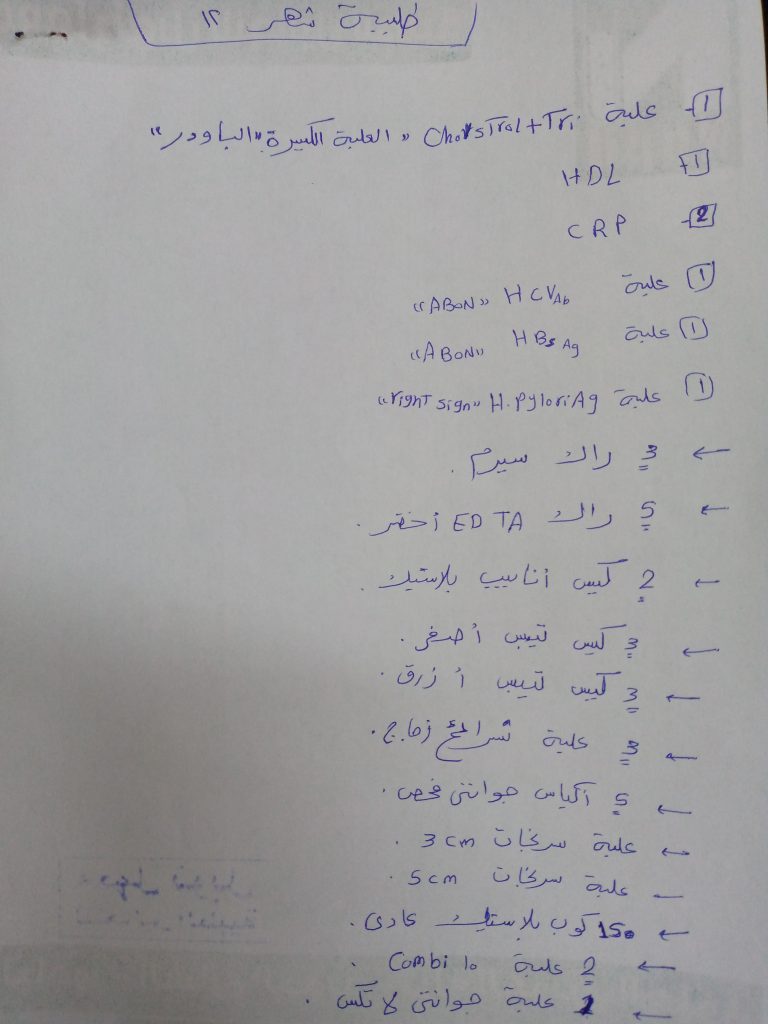 طلبية شهر ١٢
1 علبة Cholstrol + Tri «العلبة الكبيرة» "الباودر"
1 HDL
2 CRP
1 علبة HCV Ab «ABON»
1 علبة HBs Ag «ABON»
1 علبة H.PyloriAg «right sign»
← 3 راك سيرم .
← 5 راك EDTA أخضر .
← 2 كيس أنابيب بلاستيك .
← 3 كيس تيبس أصفر .
← 3 كيس تيبس أزرق .
← 3 علبة شرائح زجاج .
← 5 أكياس جوانتى فحص .
← علبة سرنجات 3 cm .
← علبة سرنجات 5 cm .
← 150 كوب بلاستيك عادى .
← 2 علبة Combi 10 .
← 1 علبة جوانتى لاتكس .